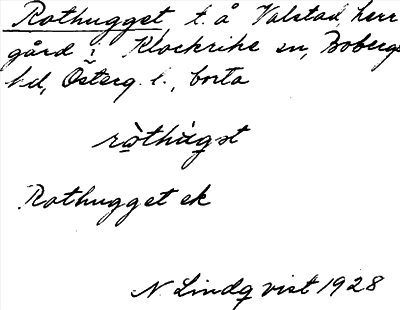 Rothugget t. å Valstad, herr
gård i Klockrike sn, Bobergs
hd, Österg. l., borta
ròthùgst
Rothugget ek
N Lindqvist 1928